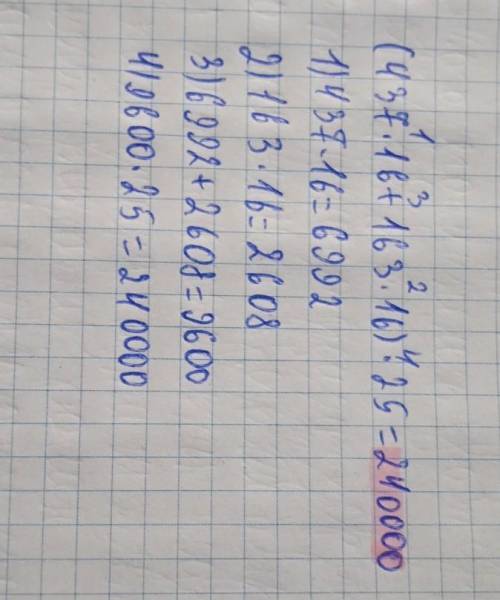 (437·16+163·16)·25=240000
1)437·16=6992
2)163·16=2608
3)6992+2608=9600
4)9600·25=240000